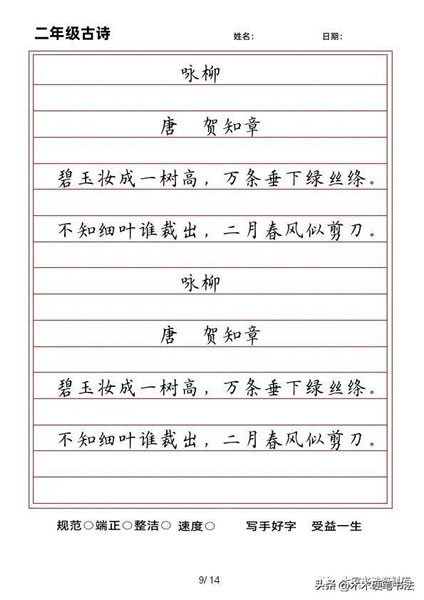 二年级古诗 姓名： 日期：
咏柳
唐 贺知章
碧玉妆成一树高，万条垂下绿丝绦。
不知细叶谁裁出，二月春风似剪刀。
咏柳
唐 贺知章
碧玉妆成一树高，万条垂下绿丝绦。
不知细叶谁裁出，二月春风似剪刀。
规范○端正○整洁○ 速度○ 写手好字 受益一生
9/14
头条 @木木硬笔书法